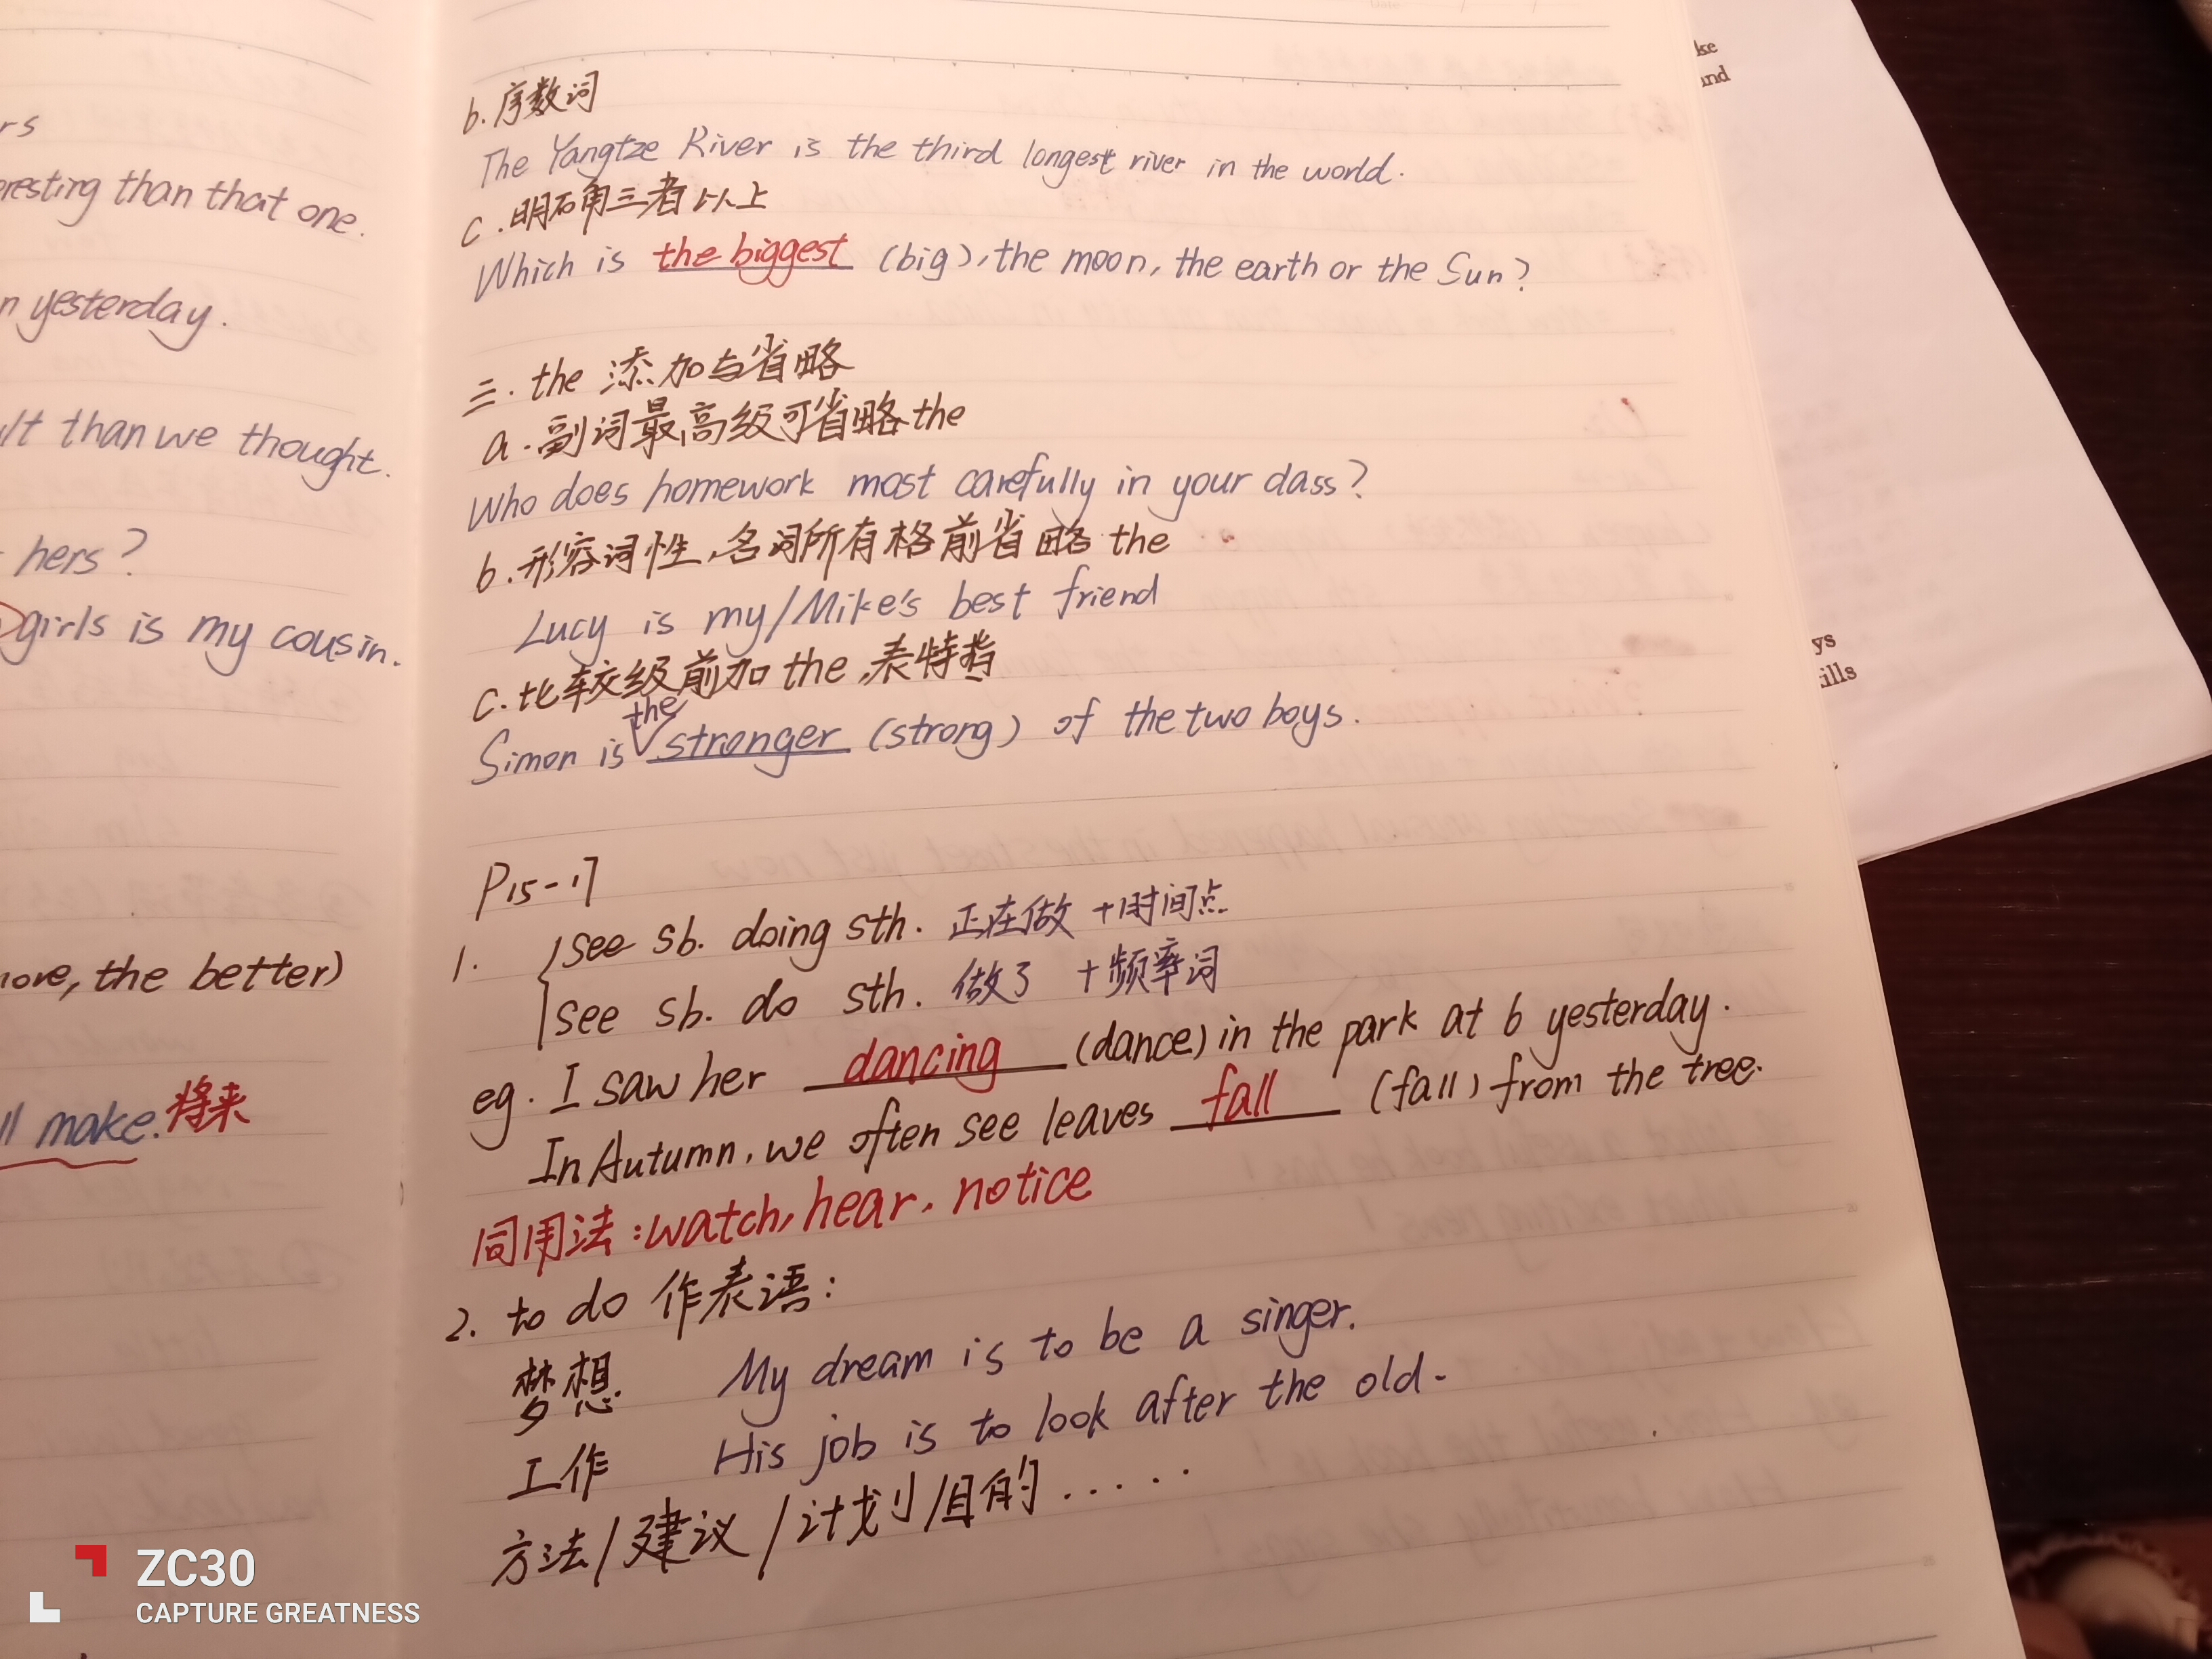 rs
resting than that one.
n yesterday.
lt than we thought.
hers?
girls is my cousin.
more, the better)
ll make.将来
b.序数词
The Yangtze River is the third longest river in the world.
c.明确三者以上
Which is the biggest (big), the moon, the earth or the Sun?
三.the 添加与省略
a.副词最高级可省略the
Who does homework most carefully in your class?
b.形容词性,名词所有格前省略 the
Lucy is my/Mike's best friend
c.比较级前加 the,表特指
the
Simon is stronger (strong) of the two boys.
P15-17
1. see sb. doing sth. 正在做 +时间点
see sb. do sth. 做了 +频率词
eg. I saw her dancing (dance) in the park at 6 yesterday.
In Autumn, we often see leaves fall (fall) from the tree.
同用法:watch, hear, notice
2. to do 作表语:
梦想 My dream is to be a singer.
工作 His job is to look after the old.
方法/建议/计划/目的......
ke
and
ys
ills
ZC30
CAPTURE GREATNESS